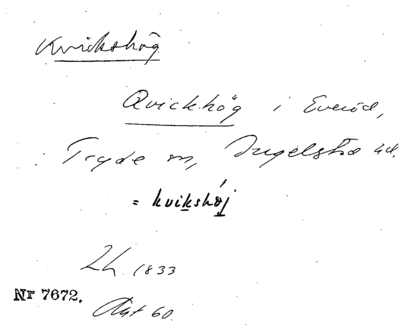 Kvikshög
Qvickhög i Everöd,
Tryde sn, Ingelsta hd.
= kvikshøj
Lh. 1833
Nr 7672.
Akt 60.